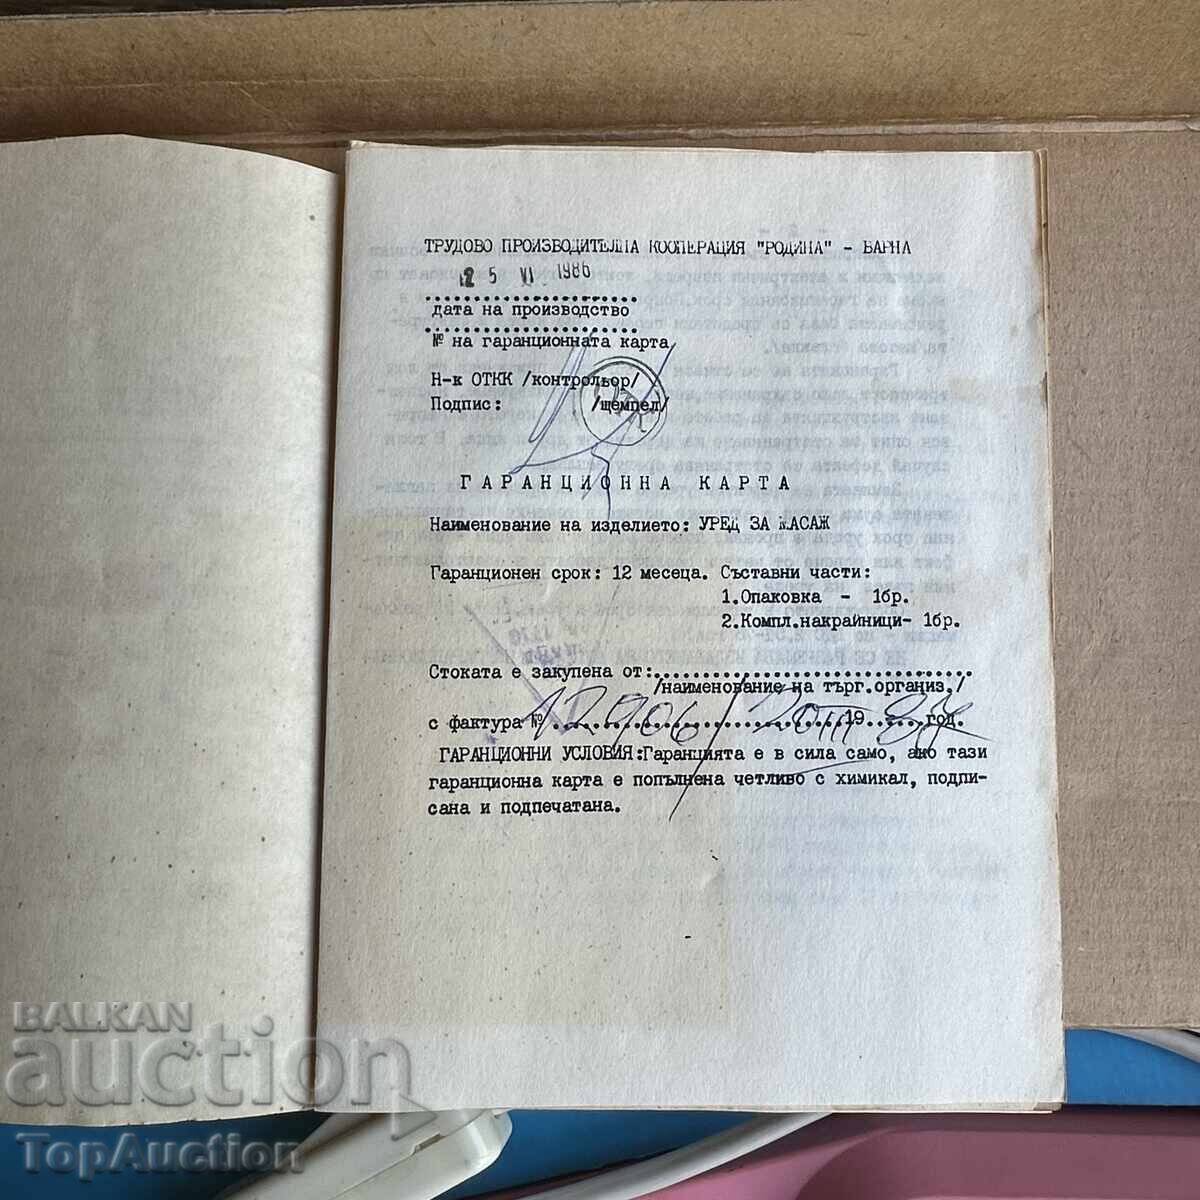 ТРУДОВО ПРОИЗВОДИТЕЛНА КООПЕРАЦИЯ "РОДИНА" - ВАРНА
25 VI 1986
дата на производство
№ на гаранционната карта
Н-к ОТКК /контрольор/
Подпис: /щемпел/
ГАРАНЦИОННА КАРТА
Наименование на изделието: УРЕД ЗА МАСАЖ
Гаранционен срок: 12 месеца. Съставни части:
1.Опаковка - 1бр.
2.Компл.накрайници- 1бр.
Стоката е закупена от:
/наименование на търг.организ./
с фактура № 12906/20III 19 87 год.
ГАРАНЦИОННИ УСЛОВИЯ:Гаранцията е в сила само, ако тази
гаранционна карта е попълнена четливо с химикал, подпи-
сана и подпечатана.
BALKAN
auction
TopAuction